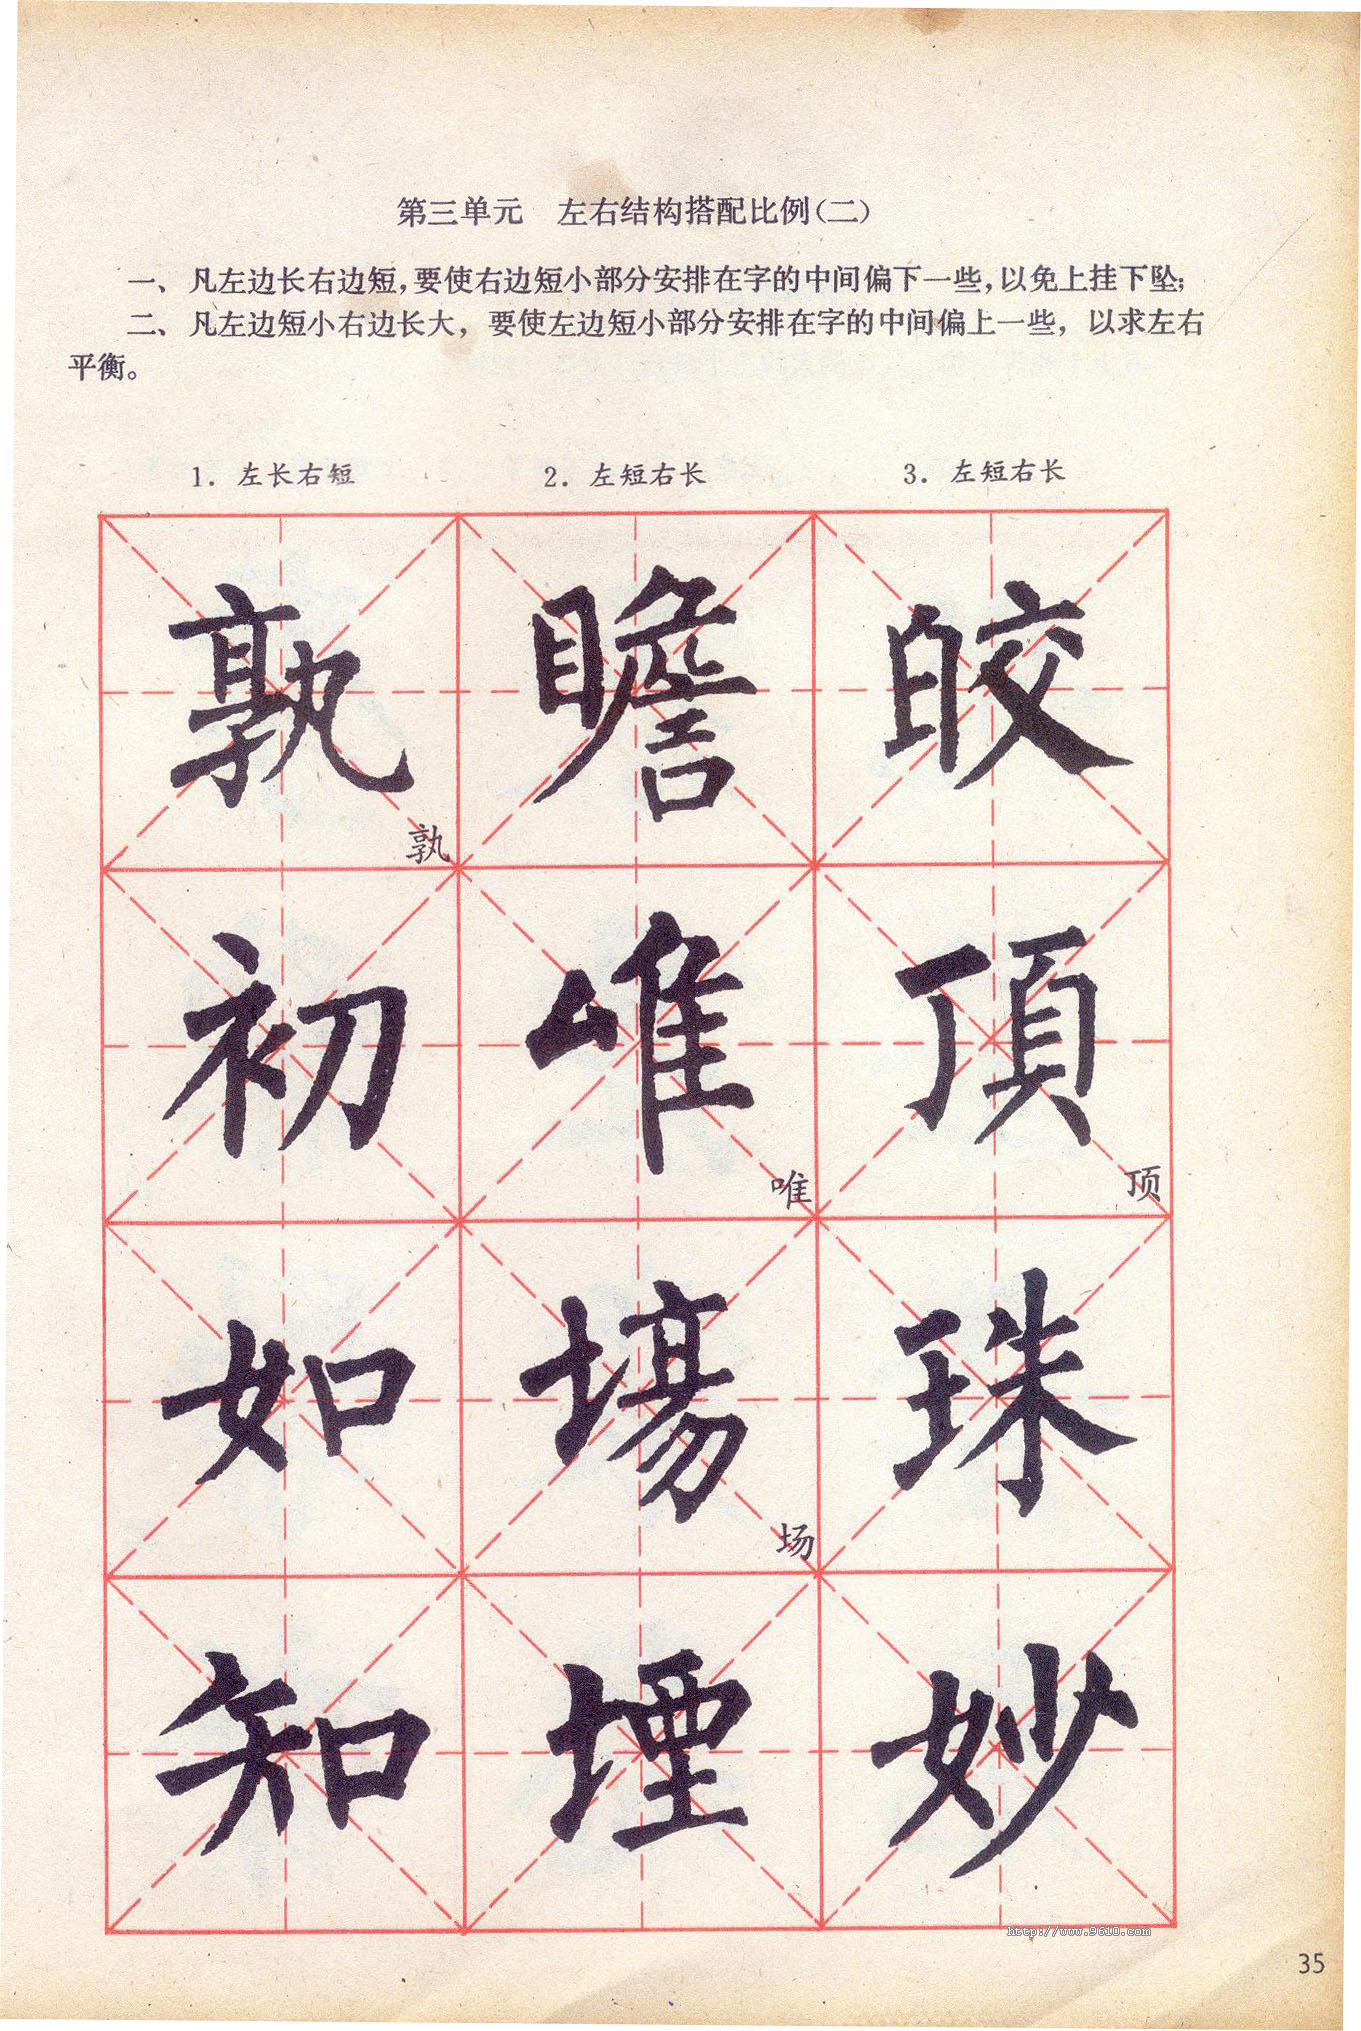 第三单元　左右结构搭配比例(二)
一、凡左边长右边短，要使右边短小部分安排在字的中间偏下一些，以免上挂下坠；
二、凡左边短小右边长大，要使左边短小部分安排在字的中间偏上一些，以求左右
平衡。
1. 左长右短　2. 左短右长　3. 左短右长
孰 瞻 皎
孰
初 唯 頂
唯 顶
如 場 珠
场
知 堙 妙
http://www.9610.com
35